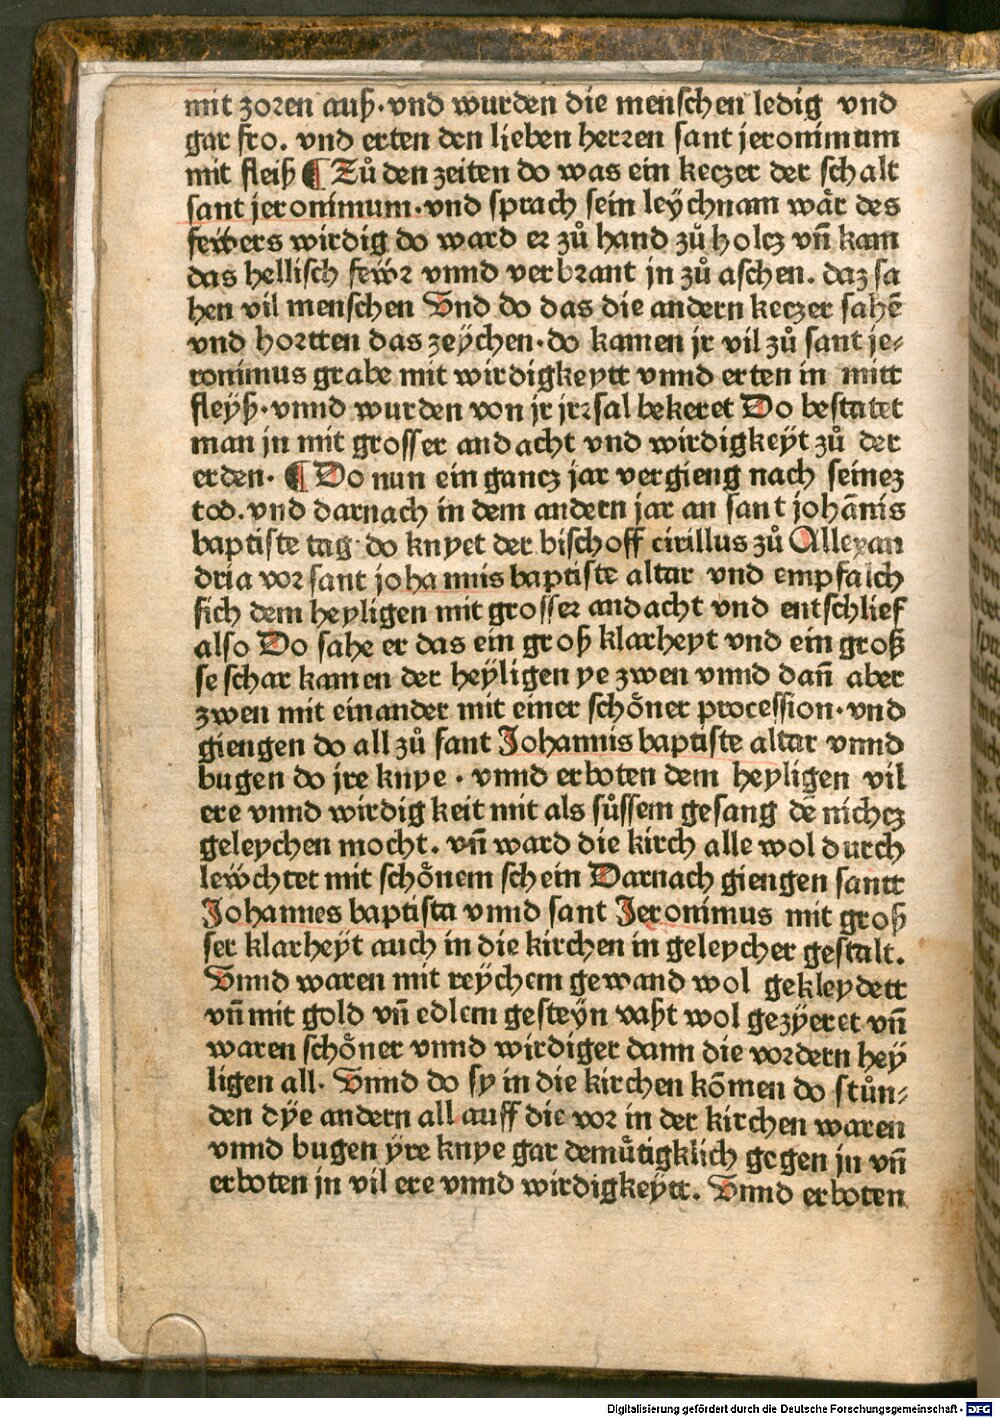 mit zoren auß·vnd wurden die menschen ledig vnd
gar fro. vnd erten den lieben herren sant jeronimum
mit fleiß ¶ Zů den zeiten do was ein keczer der schalt
sant jeronimum·vnd sprach sein leÿchnam wår des
feẅers wirdig do ward er zů hand zů holcz vn̄ kam
das hellisch feẅr vnnd verbrant jn zů aschen. daz sa
hen vil menschen Vnd do das die andern keczer sahē
vnd hortten das zeÿchen·do kamen jr vil zů sant je⸗
ronimus grabe mit wirdigkeytt vnnd erten in mitt
fleÿß·vnnd wurden von jr jrrsal bekeret Do bestatet
man jn mit grosser andacht vnd wirdigkeÿt zů der
erden· ¶ Do nun ein gancz jar vergieng nach seinez
tod.vnd darnach in dem andern jar an sant johānis
baptiste tag do knyet der bischoff cirillus zů Allexan
dria vor sant johannis baptiste altar vnd empfalch
sich dem heyligen mit grosser andacht vnd entschlief
also Do sahe er das ein groß klarheyt vnd ein groß
se schar kamen der heÿligen ye zwen vnnd dan̄ aber
zwen mit einander mit einer schöner procession·vnd
giengen do all zů sant Johannis baptiste altar vnnd
bugen do jre knye · vnnd erboten dem heyligen vil
ere vnnd wirdigkeit mit als sůssem gesang dē nichcz
geleychen mocht. vn̄ ward die kirch alle wol durch
leẅchtet mit schönem schein Darnach giengen santt
Johannes baptista vnnd sant Jeronimus mit groß
ser klarheÿt auch in die kirchen in geleycher gestalt.
Vnnd waren mit reÿchem gewand wol gekleydett
vn̄ mit gold vn̄ edlem gesteÿn vaßt wol gezÿeret vn̄
waren schöner vnnd wirdiger dann die vordern hey
ligen all. Vnnd do sy in die kirchen kōmen do stůn⸗
den dÿe andern all auff die vor in der kirchen waren
vnnd bugen ÿre knye gar demůtigklich gegen jn vn̄
erboten jn vil ere vnnd wirdigkeÿtt. Vnnd erboten
Digitalisierung gefördert durch die Deutsche Forschungsgemeinschaft - DFG